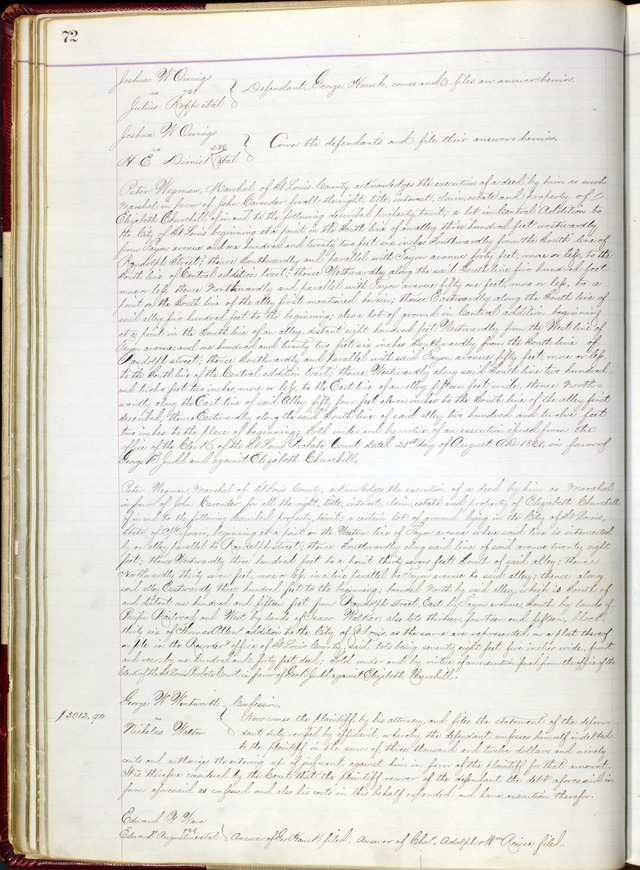 72
Joshua W Owings
vs 724 } Defendant, George Hauck, comes and files an answer herein.
Julius et al
Joshua W Owings
vs 286 } Come the defendants and file their answers herein.
H E Dimick et al
Peter Wegman, Marshal of St Louis County, acknowledges the execution of a deed by him as such
Marshal, in favor of John Cavender for all the right, title, interest, claim, estate and property of
Elizabeth Churchill of in and to the following described property, towit; a lot in Central Addition to
the City of St Louis beginning at a point in the South line of an alley three hundred feet westwardly
from Tayon avenue and one hundred and twenty two feet six inches Southwardly from the South line of
Randolph Street; thence Southwardly and parallel with Tayon avenue forty feet, more or less, to the
South line of Central addition tract; thence Westwardly along the said South line five hundred feet
more or less, thence Northwardly and parallel with Tayon avenue fifty one feet, more or less, to a
point on the South line of the alley first mentioned herein; thence Eastwardly along the South line of
said alley five hundred feet to the beginning; also a lot of ground in Central addition beginning
at a point in the South line of an alley distant eight hundred feet Westwardly from the West line of
Tayon avenue, and one hundred and twenty two feet six inches Southwardly from the South line of
Randolph street; thence Southwardly and parallel with said Tayon avenue, fifty feet, more or less,
to the South line of the Central addition tract; thence Westwardly along said South line two hundred
and twelve feet two inches, more or less, to the East line of an alley fifteen feet wide, thence North-
wardly along the East line of said Alley fifty four feet eleven inches to the South line of the alley first
described, thence Eastwardly along the said South line of said alley two hundred and twelve feet
two inches to the place of beginning; Sold under and by virtue of an execution issued from the
office of the Clerk of the St Louis Probate Court dated 21st day of August AD 1861, in favor of
George B Judd and against Elizabeth Churchill.
Peter Wegman, Marshal of St Louis County, acknowledges the execution of a deed by him as Marshal
in favor of John Cavender for all the right, title, interest, claim, estate and property of Elizabeth Churchill
of in and to the following described property, towit; a certain lot of ground lying in the City of St Louis,
State of Missouri, beginning at a point on the Western line of Tayon avenue where said line is intersected
by an alley parallel to Randolph Street; thence Southwardly along said line of said avenue twenty eight
feet; thence Westwardly three hundred feet to a point thirty seven feet South of said alley; thence
Northwardly thirty seven feet, more or less, in a line parallel to Tayon avenue to said alley; thence along
said alley Eastwardly three hundred feet to the beginning; bounded North by said alley, which is South of
and distant one hundred and fifteen feet from Randolph Street, East by Tayon avenue, South by lands of
and West by lands of Isaac Walker also lots thirteen, fourteen and fifteen, block
thirty six of Thomas Allen's addition to the City of St Louis, as the same are represented on a plat thereof
on file in the Recorder's office of St Louis County, said lots being seventy eight feet five inches wide, front
and rear, by one hundred and forty feet deep; Sold under and by virtue of an execution issued from the office of the
Clerk of the St Louis Probate Court in favor of Geo B Judd against Elizabeth Churchill.
George W Wentworth } Confession.
$3012,90 vs Now comes the plaintiff by his attorney, and files the statement of the defen-
Nicholas Walton dant duly verified by affidavit, whereby the defendant confesses himself indebted
to the plaintiff in the sum of three thousand and twelve dollars and ninety
cents and authorizes the entering up of judgment against him in favor of the plaintiff for that amount.
It is therefore considered by the Court that the plaintiff recover of the defendant the debt aforesaid in
form aforesaid as confessed and also his costs in this behalf expended and have execution therefor.
Edward
vs } Answer of Geo Hauck filed. Answer of Chas. Adolph & Wm filed.
Edward Augustine et al